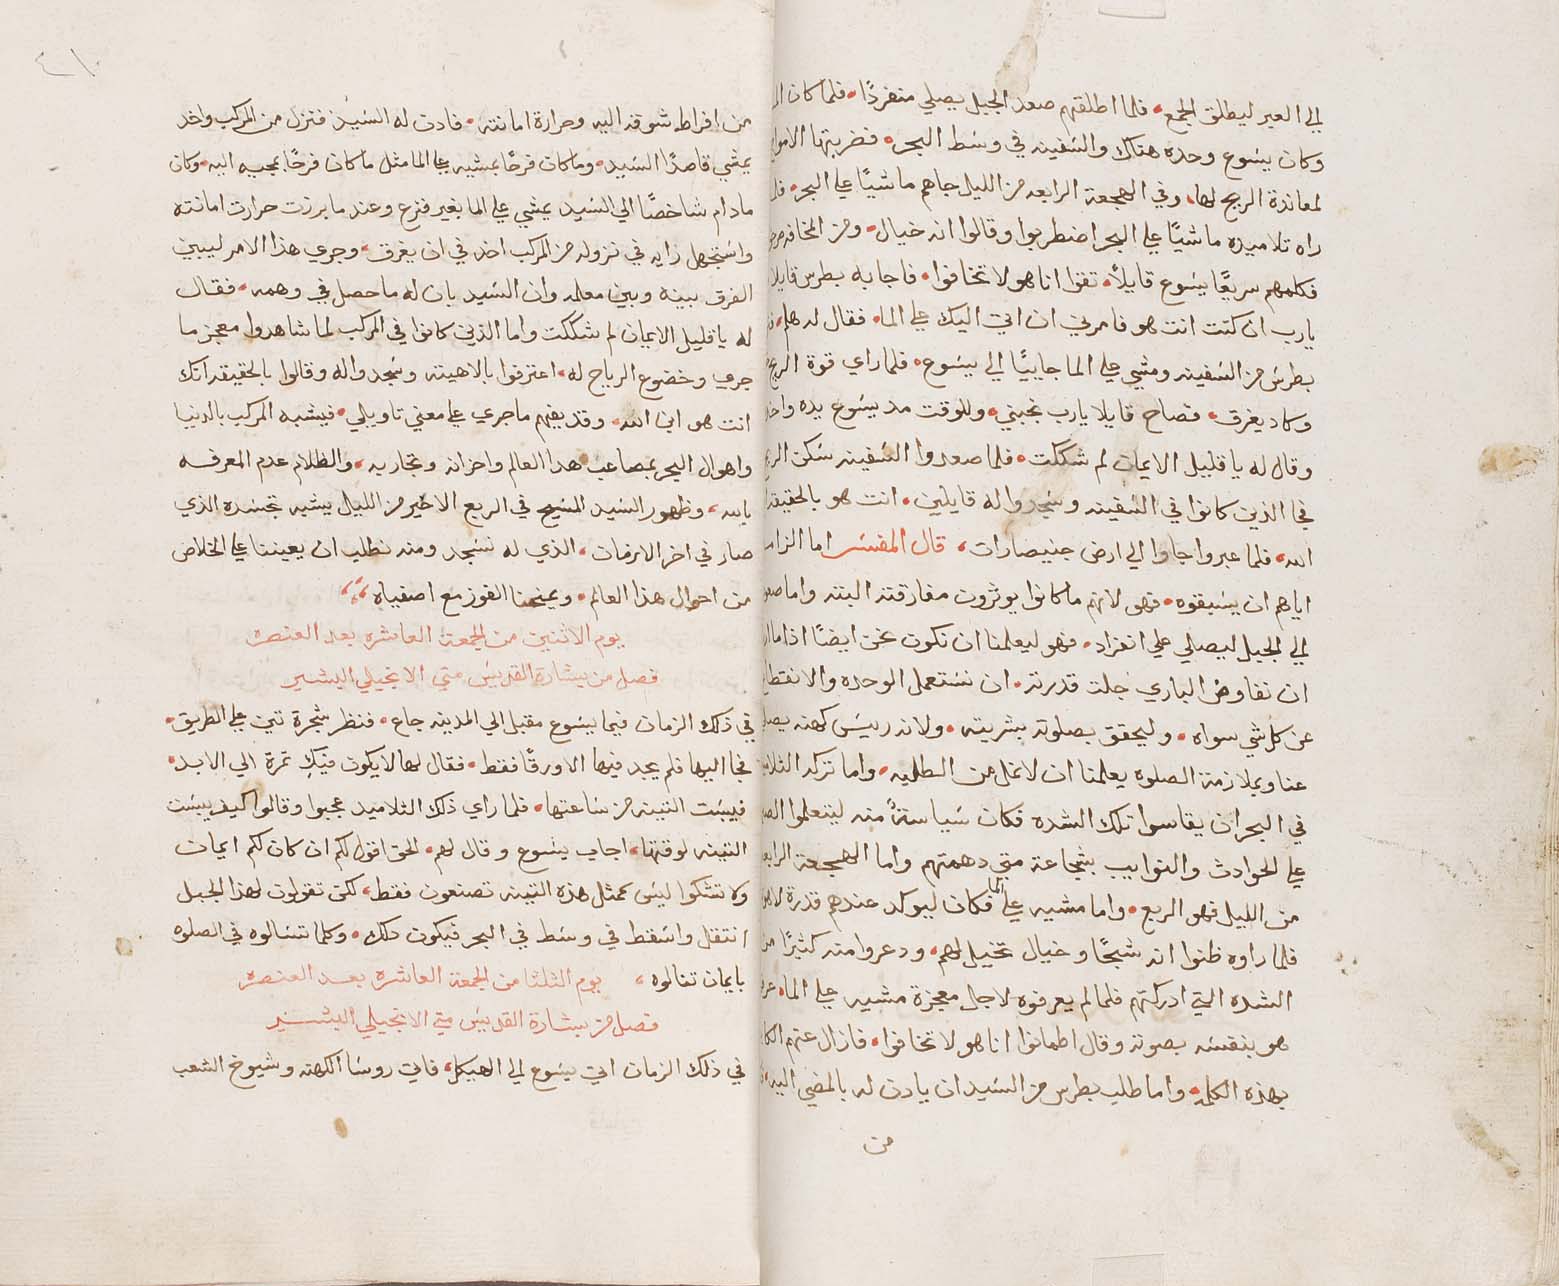 الي العبر ليطلق الجمع. فلما اطلقهم صعد الجبل يصلي منفردًا. فلما كان
وكان يسوع وحده هناك والسفينه في وسط البحر. فضربتها الامواج
لمعاندة الريح لها، وفي الهجعة الرابعه من الليل جاهم ماشيًا علي البحر.
راه تلاميده ماشيًا علي البحر اضطربوا وقالوا انه خيال. ومن المخافه
فكلمهم سريعًا يسوع قايلًا. تقوا انا هو لا تخافوا. فاجابه بطرس قايلا
يارب ان كنت انت هو فامرني ان اتي اليك علي الما. فقال له هلم.
بطرس من السفينه ومشي علي الما جاييًا الي يسوع. فلما راي قوة الريح
وكاد يغرق. فصاح قايلا يارب نجيني. وللوقت مد يسوع يده واخد
وقال له يا قليل الايمان لم شككت. فلما صعدوا السفينه سكن الريح
فجا الذين كانوا في السفينه وسجدوا له قايلين. انت هو بالحقيقه
الله، فلما عبروا جاوا الي ارض جنيصارات، قال المفسر اما الزام
اياهم ان يسبقوه. فهو لانهم ما كانوا يوثرون مفارقته البته واما صعوده
الي الجبل ليصلي علي انفراد. فهو ليعلمنا ان نكون نحن ايضًا اذا ما
ان نفاوض الباري جلت قدرته. ان نستعمل الوحده والانقطاع
عن كل شي سواه. وليحقق بصلوته بشريته. ولانه رييس كهنه
عنا وبملازمة الصلوه يعلمنا ان لا نمل من الطلبه. واما تركه التلاميد
في البحر ان يقاسوا تلك الشده فكان سياسةً منه ليتعلموا
علي الحوادث والنوايب بشجاعة متي دهمتهم واما الهجعة الرابعه
من الليل فهو الربع. واما مشيه علي الما فكان ليوكد عندهم قدرة
فلما راوه ظنوا انه شبحًا وخيال تخيل لهم. ودعروا منه كثيرًا من
الشده التي ادركتهم فلما لم يعرفوه لاجل معجزة مشيه علي الما.
هو بنفسه بصوته وقال اطمانوا انا هو لا تخافوا. فازال عنهم
بهذه الكلمه. واما طلب بطرس من السيد ان يادن له بالمضي اليه.
من
من افراط شوقه اليه وحرارة امانته. فادن له السيد فنزل من المركب واخد
يمشي قاصدًا السيد. وما كان فرحًا بمشيه علي الما مثل ما كان فرحًا بمجيه اليه. وكان
ما دام شاخصًا الي السيد يمشي علي الما بغير فزع وعند ما بردت حرارت امانته
واستجهل رايه في نزوله من المركب اخد في ان يغرق. وجري هذا الامر ليبين
الفرق بينه وبين معلمه وان السيد بان له ما حصل في وهمه. فقال
له يا قليل الايمان لم شككت واما الذين كانوا في المركب لما شاهدوا معجز ما
جري وخضوع الرياح له، اعترفوا بالاهيته وسجدوا له وقالوا بالحقيقه انك
انت هو ابن الله. وقد يفهم ما جري علي معني تاويلي. فيشبه المركب بالدنيا
واهوال البحر بمصاعب هدا العالم واحزانه وتجاربه، والظلام عدم المعرفه
بالله، وظهور السيد المسيح في الربع الاخير من الليل يشبه تجسده الذي
صار في اخر الازمان، الذي له نسجد ومنه نطلب ان يعيننا علي الخلاص
من احوال هذا العالم. ويمنحنا الفوز مع اصفياه
يوم الاثنين من الجمعة العاشره بعد العنصره
فصل من بشارة القديس متي الانجيلي البشير
في ذلك الزمان فيما يسوع مقبل الي المدينه جاع. فنظر شجرة تين علي الطريق.
فجا اليها فلم يجد فيها الا ورقًا فقط. فقال لها لا يكون فيكِ تمرة الي الابد.
فيبست التينه من ساعتها. فلما راي ذلك التلاميد عجبوا وقالوا كيف يبست
التينه لوقتها، اجاب يسوع وقال لهم. الحق اقول لكم ان كان لكم ايمان
ولا تشكوا ليس كمثل هذه التينه تصنعون فقط، لكن تقولون لهذا الجبل
انتقل واسقط في وسط في البحر فيكون دلك. وكلما تسالوه في الصلوه
بايمان تنالوه، يوم الثلثا من الجمعة العاشره بعد العنصره
فصل من بشارة القديس متي الانجيلي البشير
في ذلك الزمان اتي يسوع الي الهيكل، فاتي روسا الكهنه وشيوخ الشعب